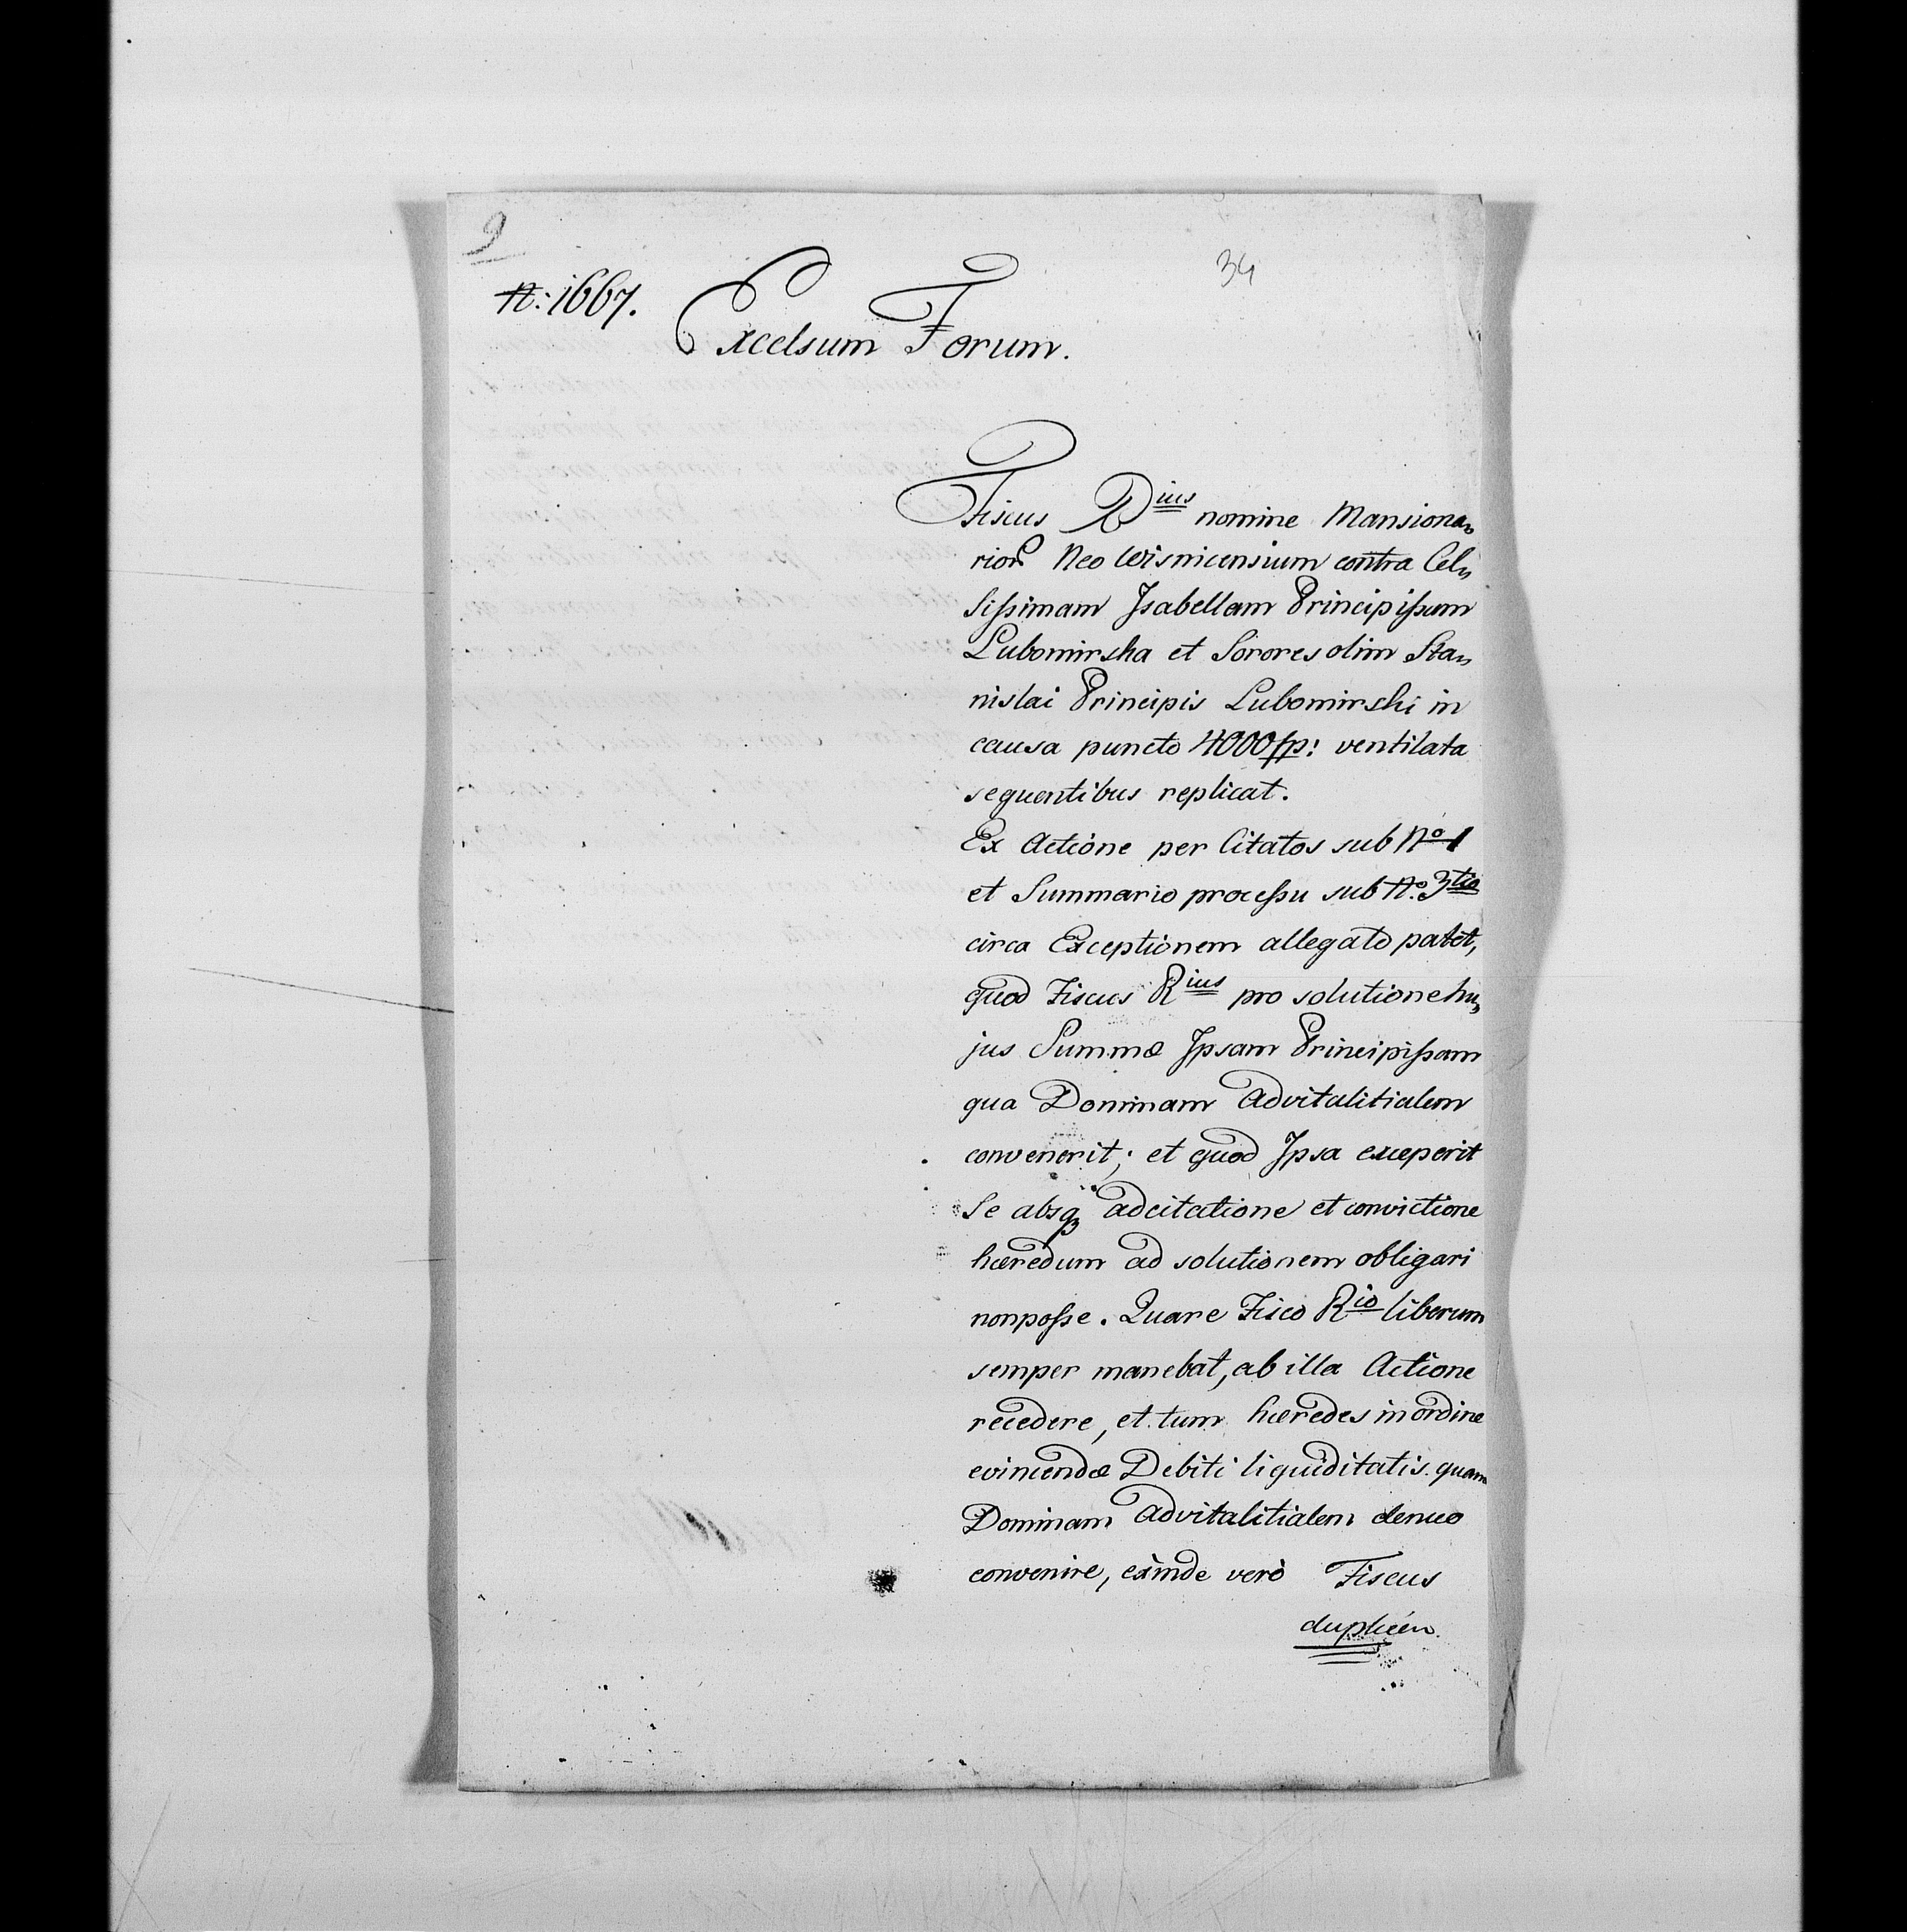 9
34
N: 1667.
Excelsum Forum.
Fiscus R^ius nomine Mansiona„
rior Neo Wisnicensium contra Cel„
sissimam Isabellam Principissam
Lubomirska et Sorores olim Sta„
nislai Principis Lubomirski in
causa puncto 4000 fp: ventilata
sequentibus replicat.
Ex Actione per Citatos sub No 1
et Summario processu sub No. 3^tio
circa Exceptionem allegato patet,
quod Fiscus R^ius pro solutione hu„
jus Summæ Ipsam Principissam
qua Dominam Advitalitialem
convenerit; et quod Ipsa exceperit
Se absq adcitatione et convictione
hæredum ad solutionem obligari
non posse. Quare Fisco R^io liberum
semper manebat, ab illa Actione
recedere, et tum hæredes in ordine
evincendæ Debiti liquiditatis quam
Dominam Advitalitialem denuo
convenire, exinde verò Fiscus